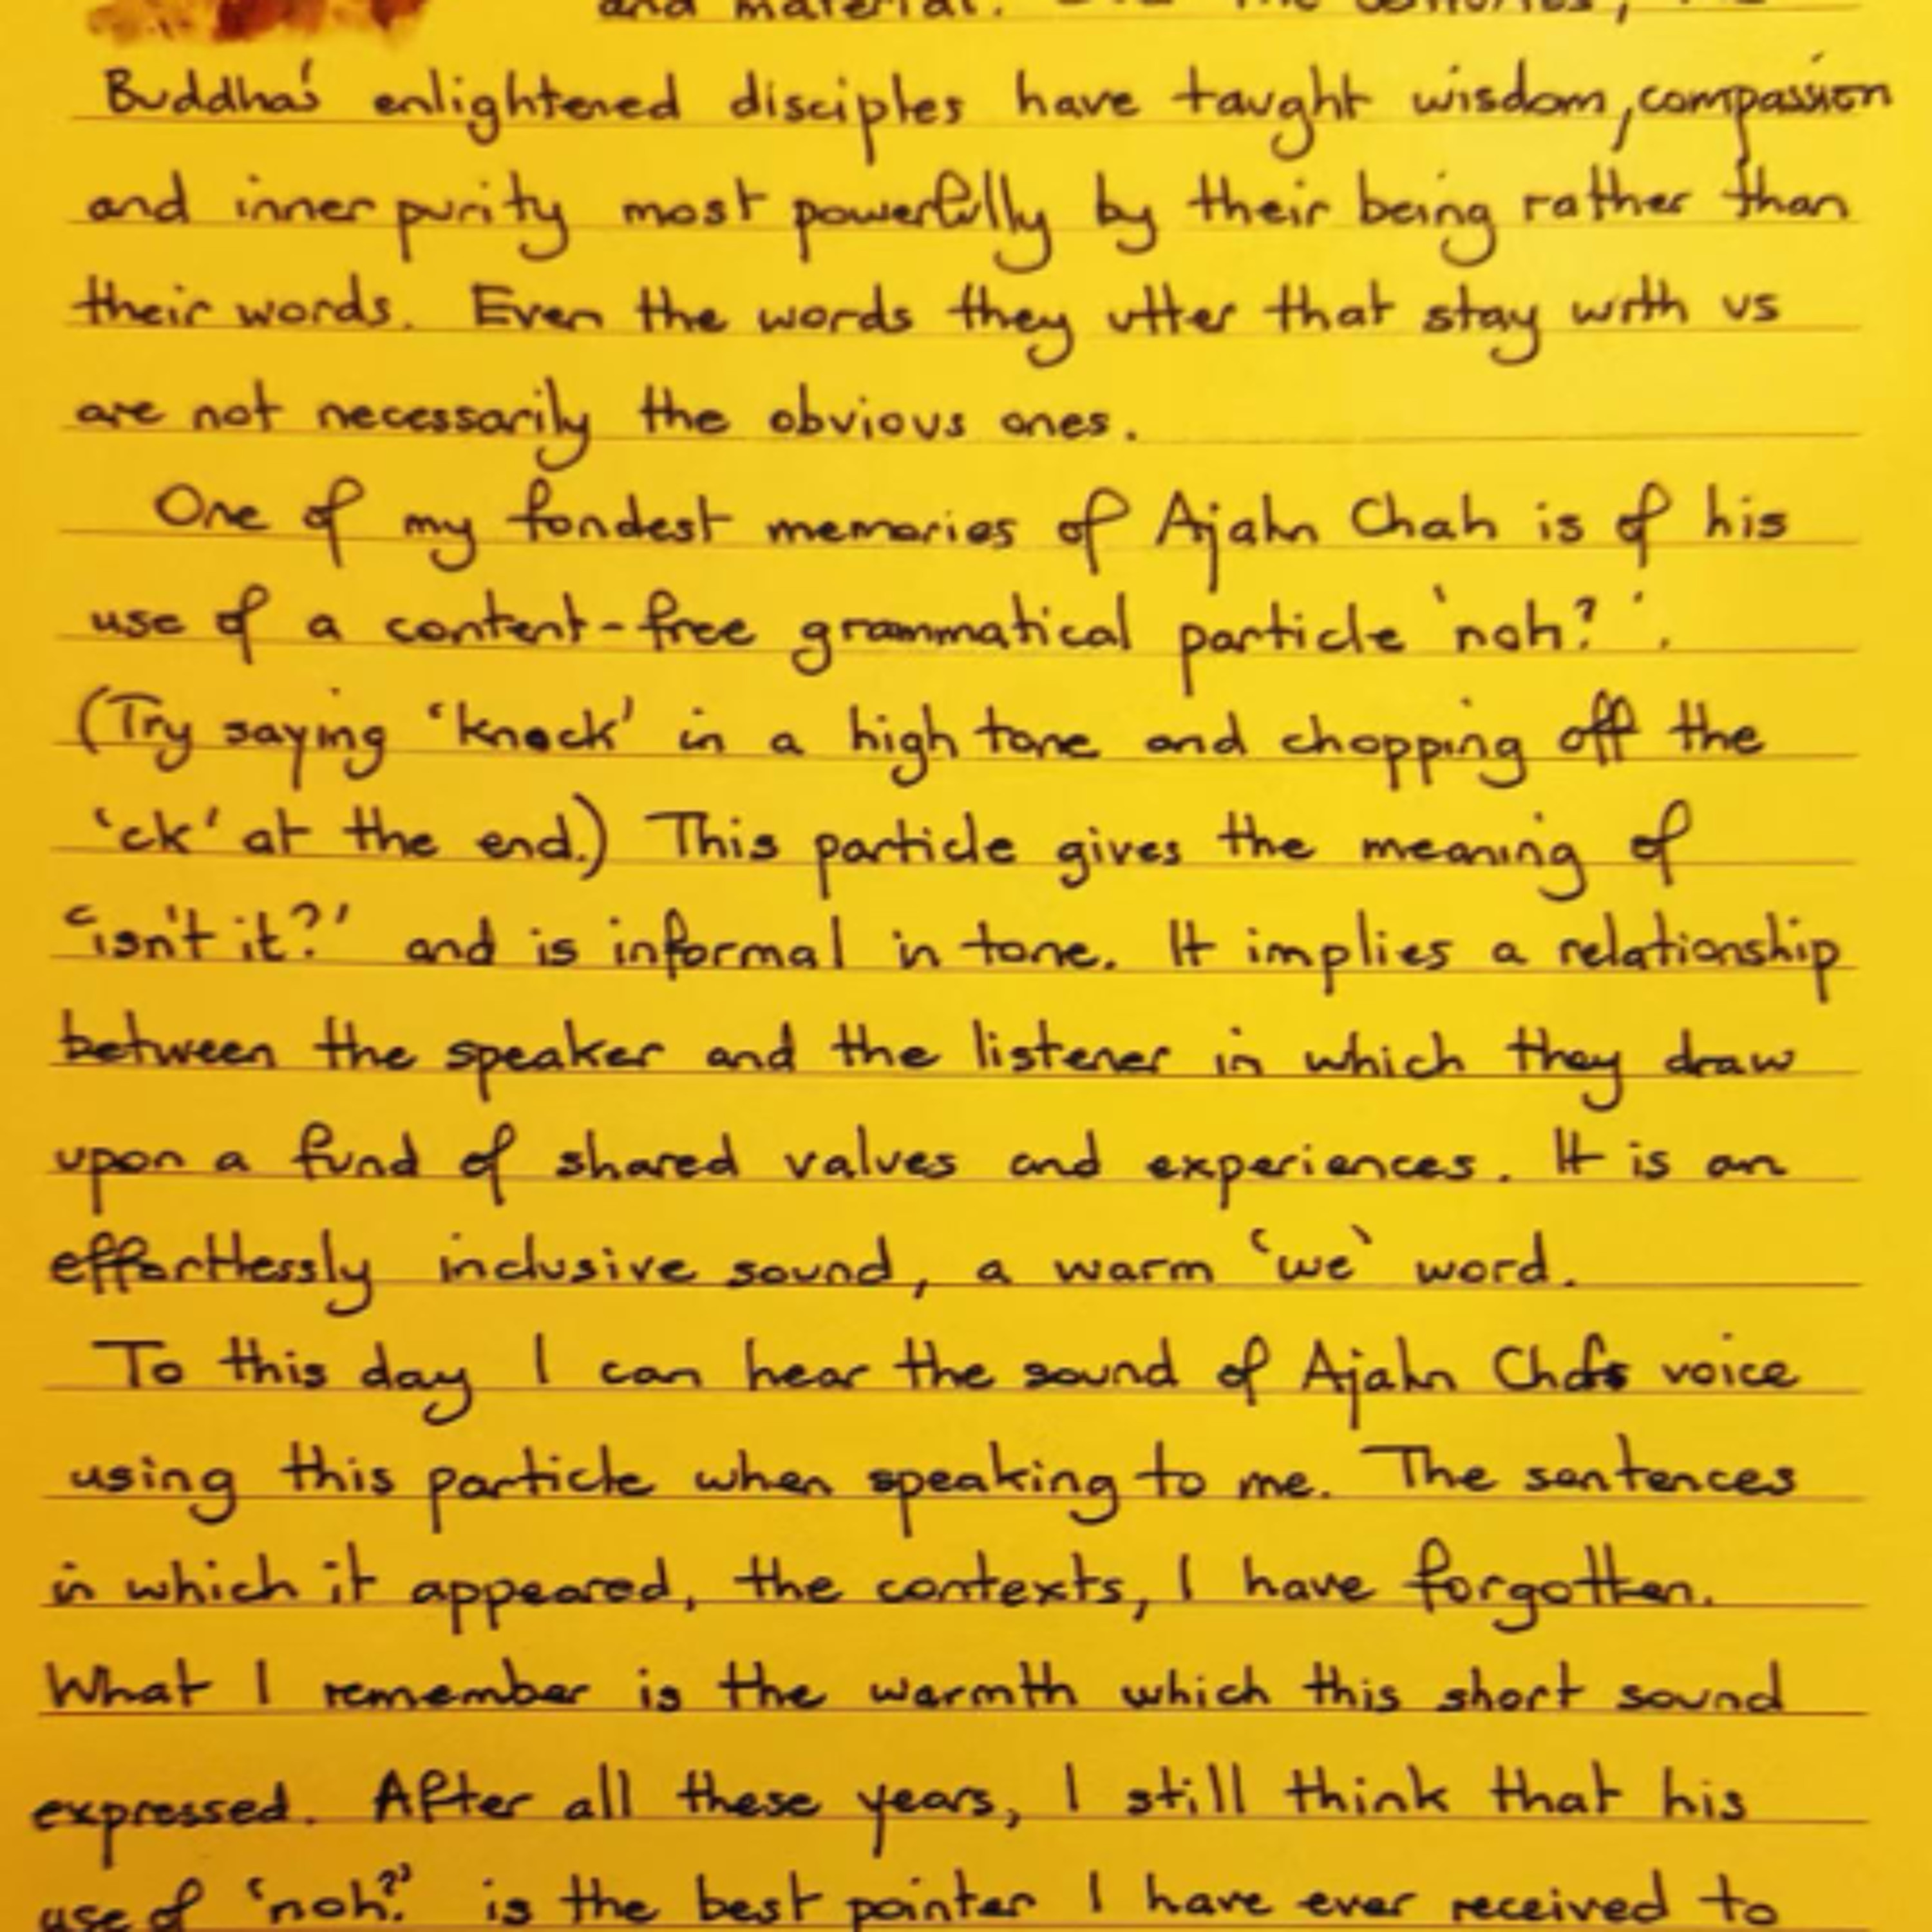 and material. the centuries, the
Buddha's enlightened disciples have taught wisdom, compassion
and inner purity most powerfully by their being rather than
their words. Even the words they utter that stay with us
are not necessarily the obvious ones.
One of my fondest memories of Ajahn Chah is of his
use of a content-free grammatical particle 'noh?'.
(Try saying 'knock' in a high tone and chopping off the
'ck' at the end.) This particle gives the meaning of
'isn't it?' and is informal in tone. It implies a relationship
between the speaker and the listener in which they draw
upon a fund of shared values and experiences. It is an
effortlessly inclusive sound, a warm 'we' word.
To this day I can hear the sound of Ajahn Chah's voice
using this particle when speaking to me. The sentences
in which it appeared, the contexts, I have forgotten.
What I remember is the warmth which this short sound
expressed. After all these years, I still think that his
use of 'noh?' is the best pointer I have ever received to